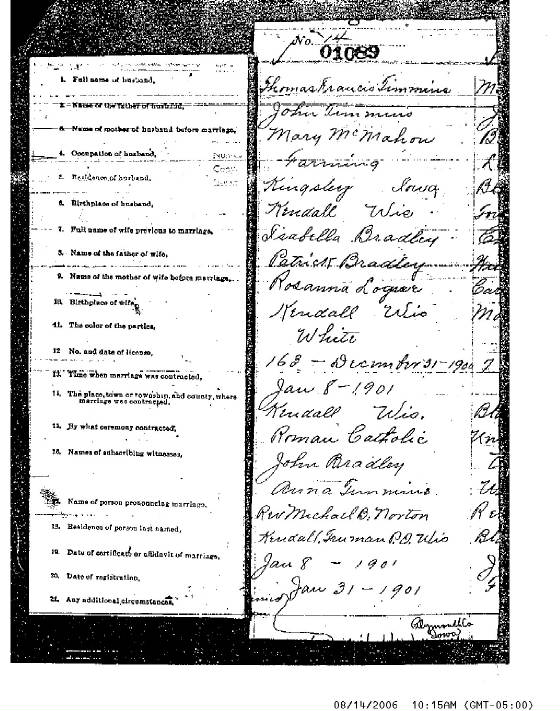 No. 14
01089
1. Full name of husband, Thomas Francis Timmins
2. Name of the father of husband, John Timmins
3. Name of mother of husband before marriage, Mary McMahon
4. Occupation of husband, Farming
5. Residence of husband, Kingsley Iowa
6. Birthplace of husband, Kendall Wis.
7. Full name of wife previous to marriage, Isabella Bradley
8. Name of the father of wife, Patrick Bradley
9. Name of the mother of wife before marriage, Rosanna
10. Birthplace of wife, Kendall Wis
11. The color of the parties, White
12 No. and date of license, 163 - December 31-1900
13. Time when marriage was contracted, Jan 8-1901
14. The place, town or township, and county, where marriage was contracted. Kendall Wis.
15. By what ceremony contracted, Roman Catholic
16. Names of subscribing witnesses, John Bradley
Anna Timmins.
17. Name of person pronouncing marriage, Rev Michael B. Norton
18. Residence of person last named, Kendall, P.O. Wis
19. Date of certificate or affidavit of marriage, Jan 8 - 1901
20. Date of registration, Jan 31-1901
21. Any additional circumstances,
Plymouth Co
Iowa
08/14/2006 10:15AM (GMT-05:00)